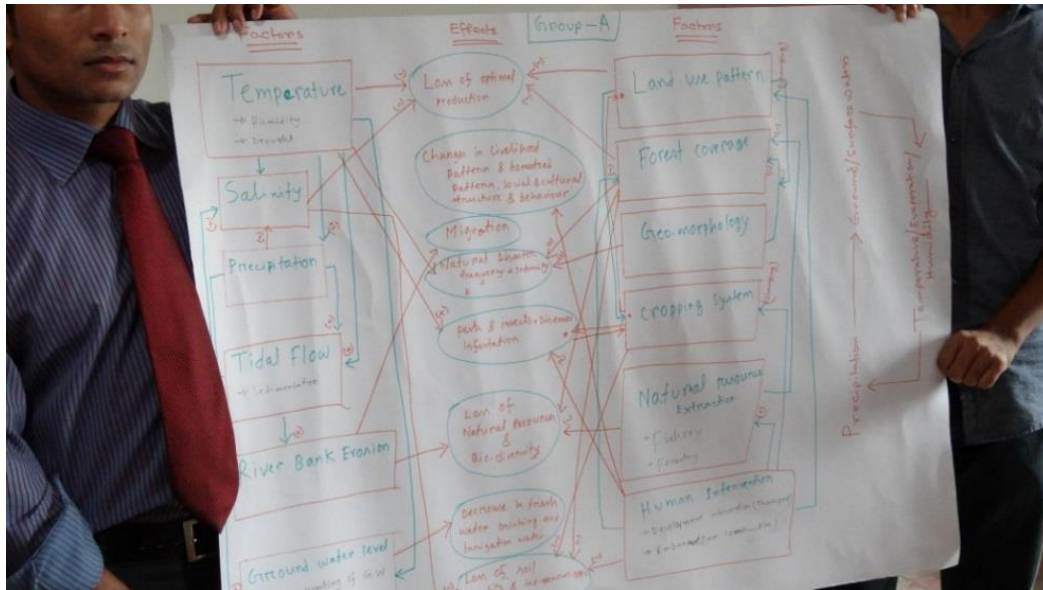 Factors
Temperature
→ Humidity
→ Drought
Salinity
Precipitation
Tidal Flow
→ Sedimentation
River Bank Erosion
Ground water level
of G.W
Effects
Loss of optimal
production
Change in Livelihood
Pattern &
Pattern, social & cultural
structure & behaviour
Migration
Natural Disaster
Pest & insects & Disease
Infestation
Loss of
Natural Resource
&
Bio-diversity
Decrease in fresh
water Drinking and
Irrigation water
Loss of soil
& indigenous
Group-A
Factors
Land use pattern
Forest coverage
Geomorphology
Cropping system
Natural resource
Extraction
• Fishery
• Forestry
Human Intervention
→ Development
→ Embankment construction
Precipitation → Ground/Surface water
Temperature/Evaporation/
Humidity